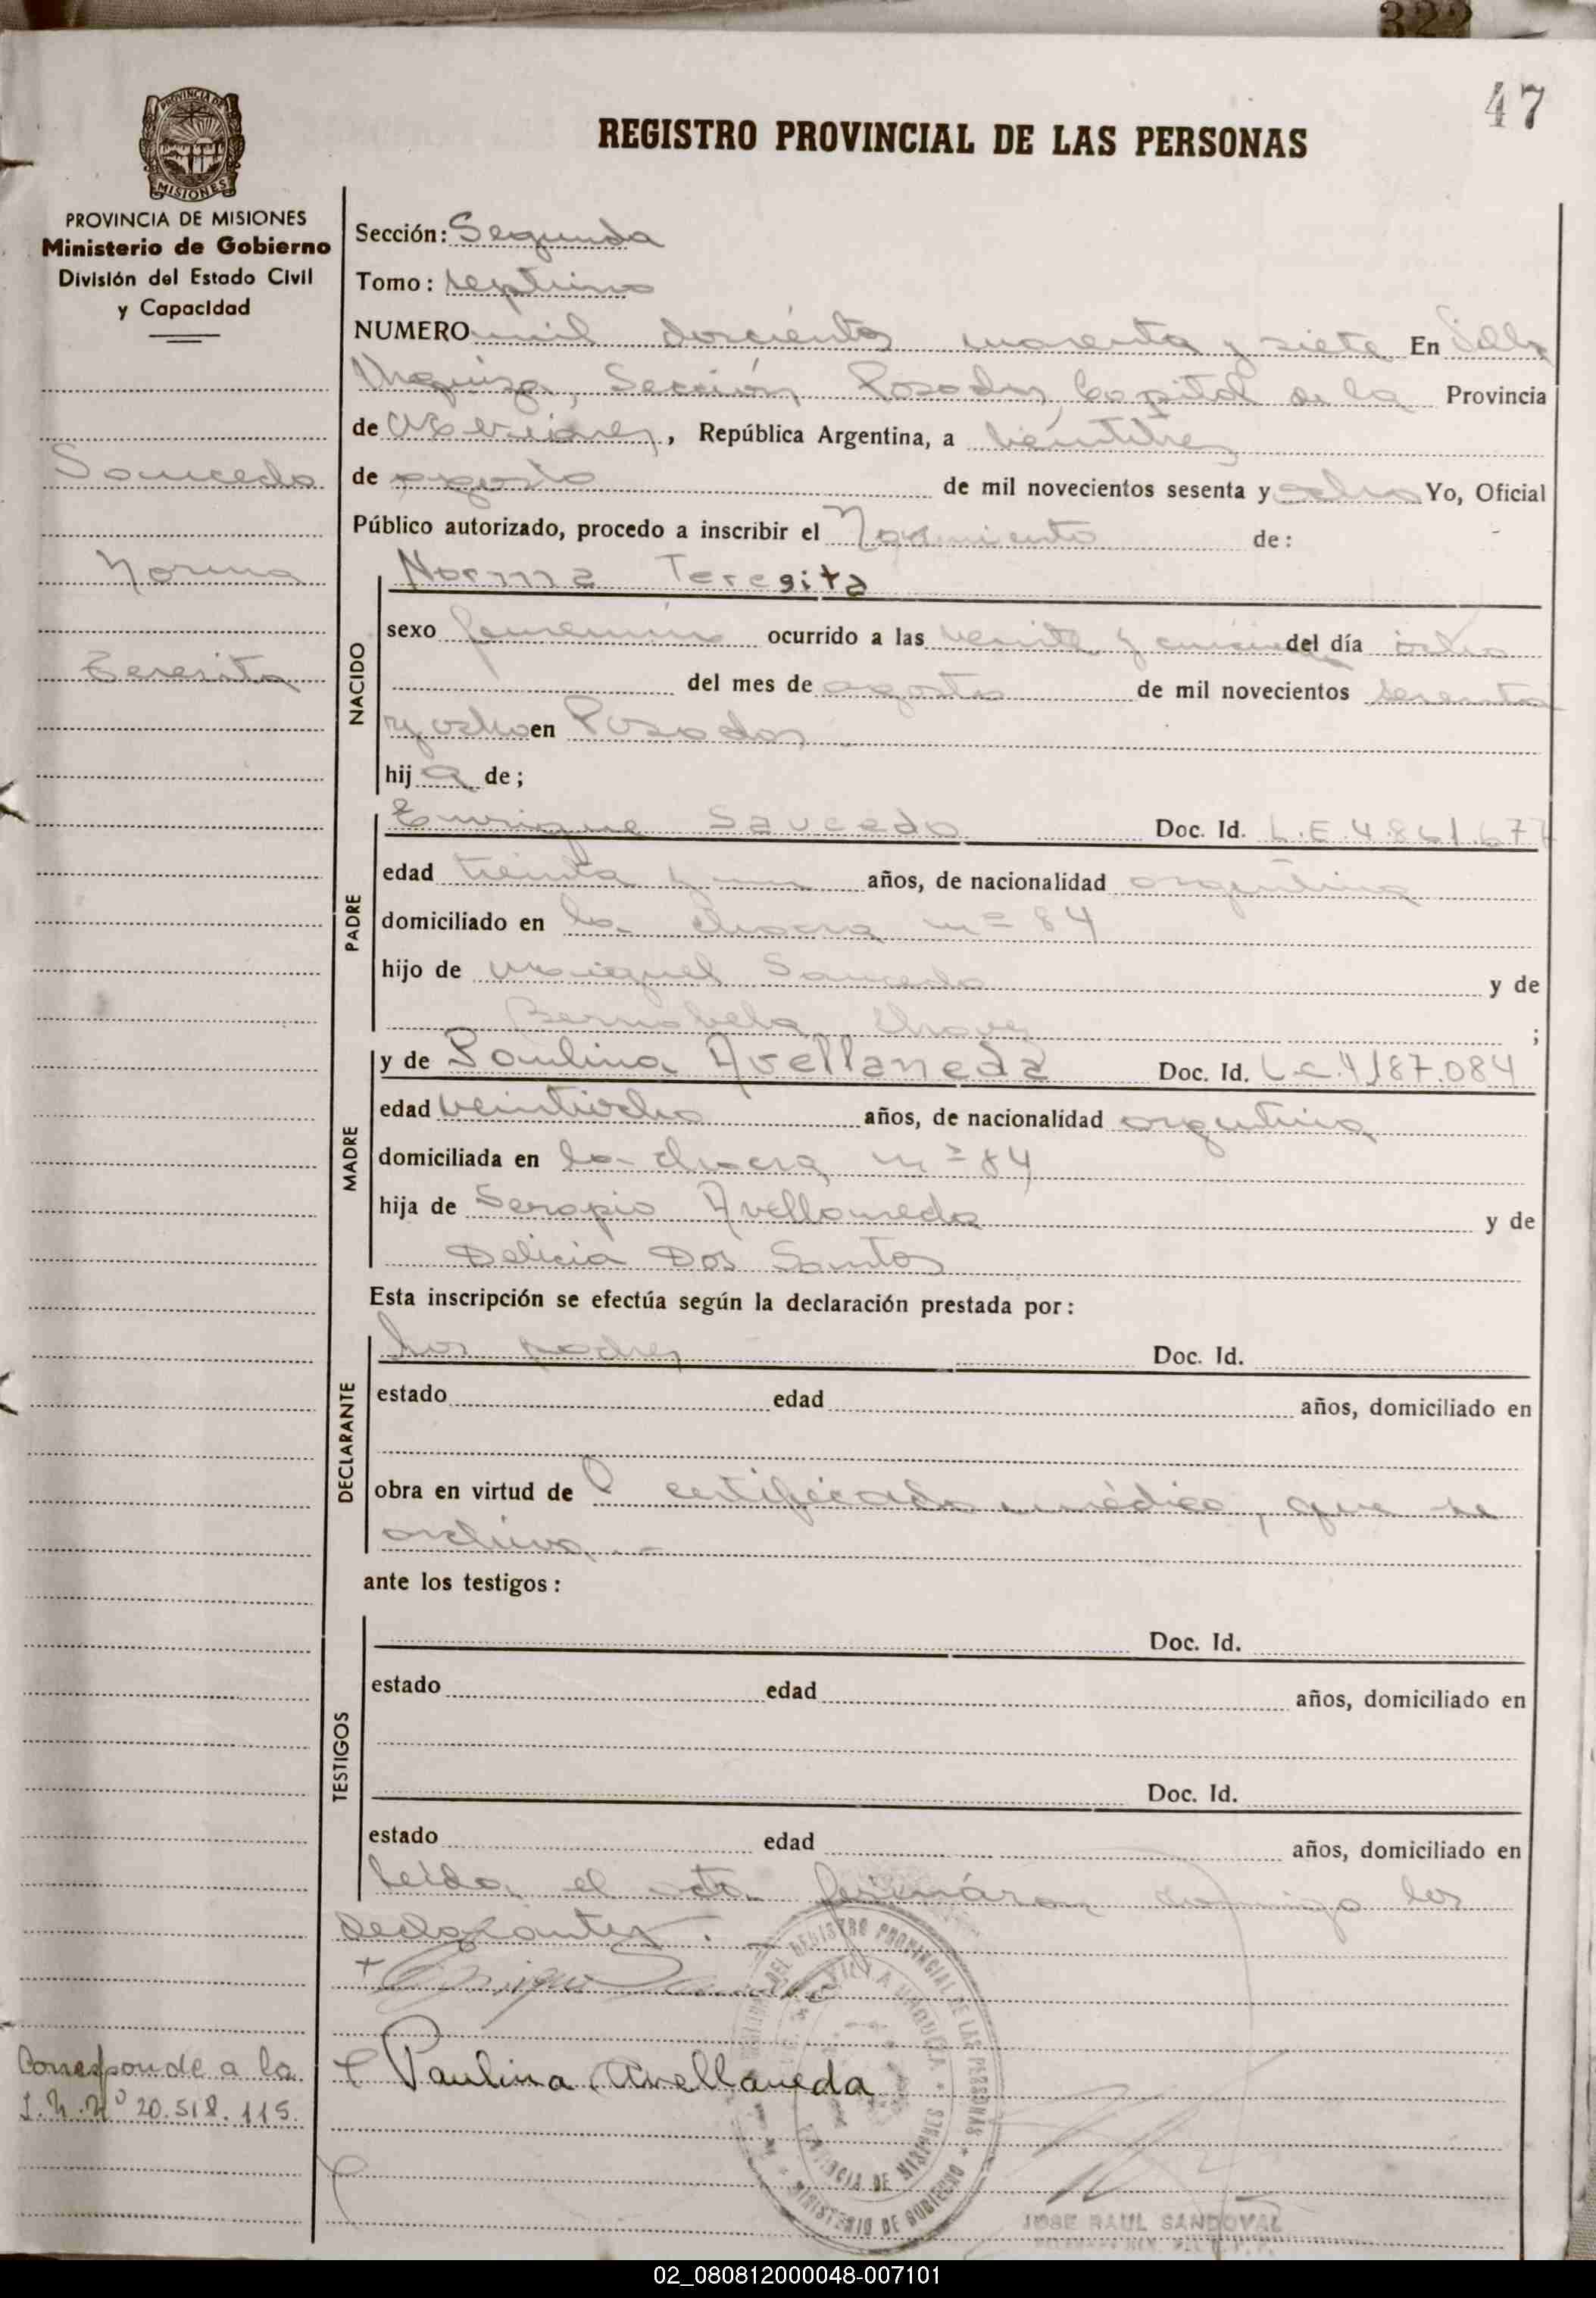 322
47
REGISTRO PROVINCIAL DE LAS PERSONAS
PROVINCIA DE
MISIONES
PROVINCIA DE MISIONES
Ministerio de Gobierno
División del Estado Civil
y Capacidad
Saucedo
Norma
Teresita
Corresponde a la
I.N.Nº 20.518.115.
Sección: Segunda
Tomo: septimo
NUMERO mil doscientos cuarenta y siete En Villa
Urquiza, Sección Posadas, Capital de la Provincia
de Misiones, República Argentina, a veintitres
de agosto de mil novecientos sesenta y ocho Yo, Oficial
Público autorizado, procedo a inscribir el Nacimiento de:
Norma Teresita
NACIDO
sexo femenino ocurrido a las veinte y cincuenta del día ocho
del mes de agosto de mil novecientos sesenta
y ocho en Posadas
hija de;
PADRE
Enrique Saucedo Doc. Id. L.E. 4.861.677
edad treinta y un años, de nacionalidad argentina
domiciliado en la chacra nº 84
hijo de Miguel Saucedo y de
Bernabela Chavez;
MADRE
y de Paulina Avellaneda Doc. Id. L.C. 4.187.084
edad veintiocho años, de nacionalidad argentina
domiciliada en la chacra nº 84
hija de Serapio Avellaneda y de
Delicia Dos Santos
Esta inscripción se efectúa según la declaración prestada por:
DECLARANTE
los padres Doc. Id.
estado edad años, domiciliado en
obra en virtud de certificado médico, que se
archiva.-
ante los testigos:
TESTIGOS
Doc. Id.
estado edad años, domiciliado en
Doc. Id.
estado edad años, domiciliado en
Leida el acta firmáron conmigo los
declarantes.
+ Enrique Saucedo
+ Paulina Avellaneda
DEL REGISTRO PROVINCIAL DE LAS PERSONAS
VILLA URQUIZA
PROVINCIA DE MISIONES
MINISTERIO DE GOBIERNO
JOSE RAUL SANDOVAL
02_080812000048-007101